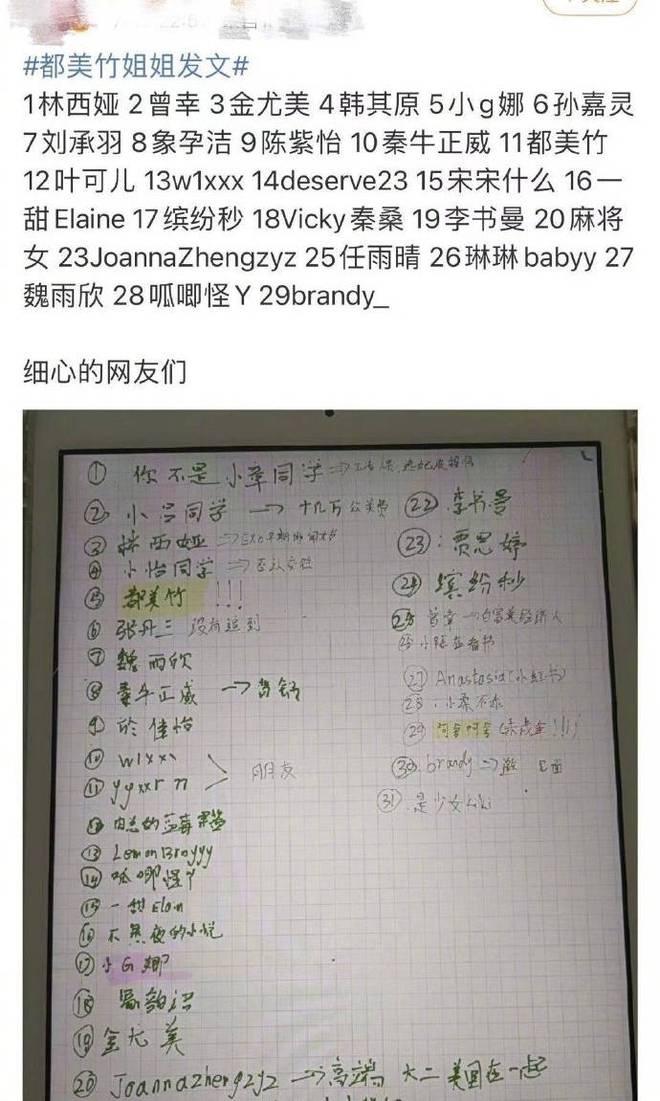 #都美竹姐姐发文#
1林西娅 2曾幸 3金尤美 4韩其原 5小g娜 6孙嘉灵
7刘承羽 8象孕洁 9陈紫怡 10秦牛正威 11都美竹
12叶可儿 13w1xxx 14deserve23 15宋宋什么 16一
甜Elaine 17缤纷秒 18Vicky秦桑 19李书曼 20麻将
女 23JoannaZhengzyz 25任雨晴 26琳琳babyy 27
魏雨欣 28呱唧怪Y 29brandy_
细心的网友们
① 你不是小章同学
② 小吕同学 → 十几万公关费
③ 林西娅
④ 小怡同学 → 否认
⑤ 都美竹 !!!
⑥ 张丹三 没有追到
⑦ 魏雨欣
⑧ 秦牛正威 →
⑨ 於佳怡
⑩ w1xxx
⑪ yyxxr 朋友
⑬ LemonBrayyy
⑭ 呱唧怪Y
⑮ 一甜Elain
⑯ 不熬夜的小悦
⑰ 小G娜
⑱
⑲ 金尤美
⑳ Joannazhengzyz → 高端 大二 美国在一起
㉒ 李书曼
㉓: 贾思婷
㉔ 缤纷秒
㉕ 曾幸 → 白富美经济人
小陈在看书
㉗ Anastasia(小红书)
㉘: 小柔不柔
㉙
㉚. brandy →
㉛. 是少女